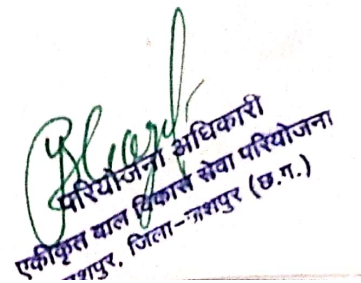 परियोजना अधिकारी
एकीकृत बाल विकास सेवा परियोजना
जशपुर, जिला-जशपुर (छ.ग.)